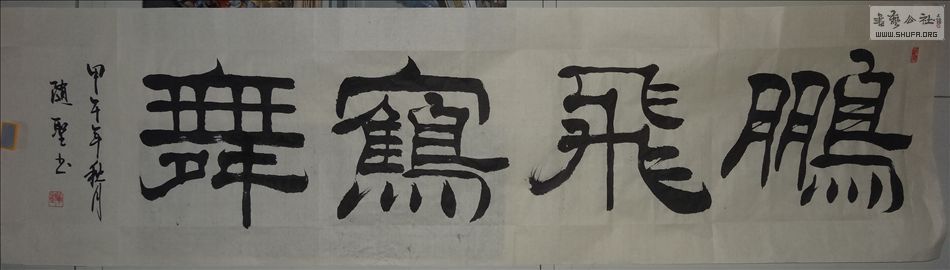 鵬飛鶴舞
甲午年秋月
随聖书
书艺公社
WWW.SHUFA.ORG